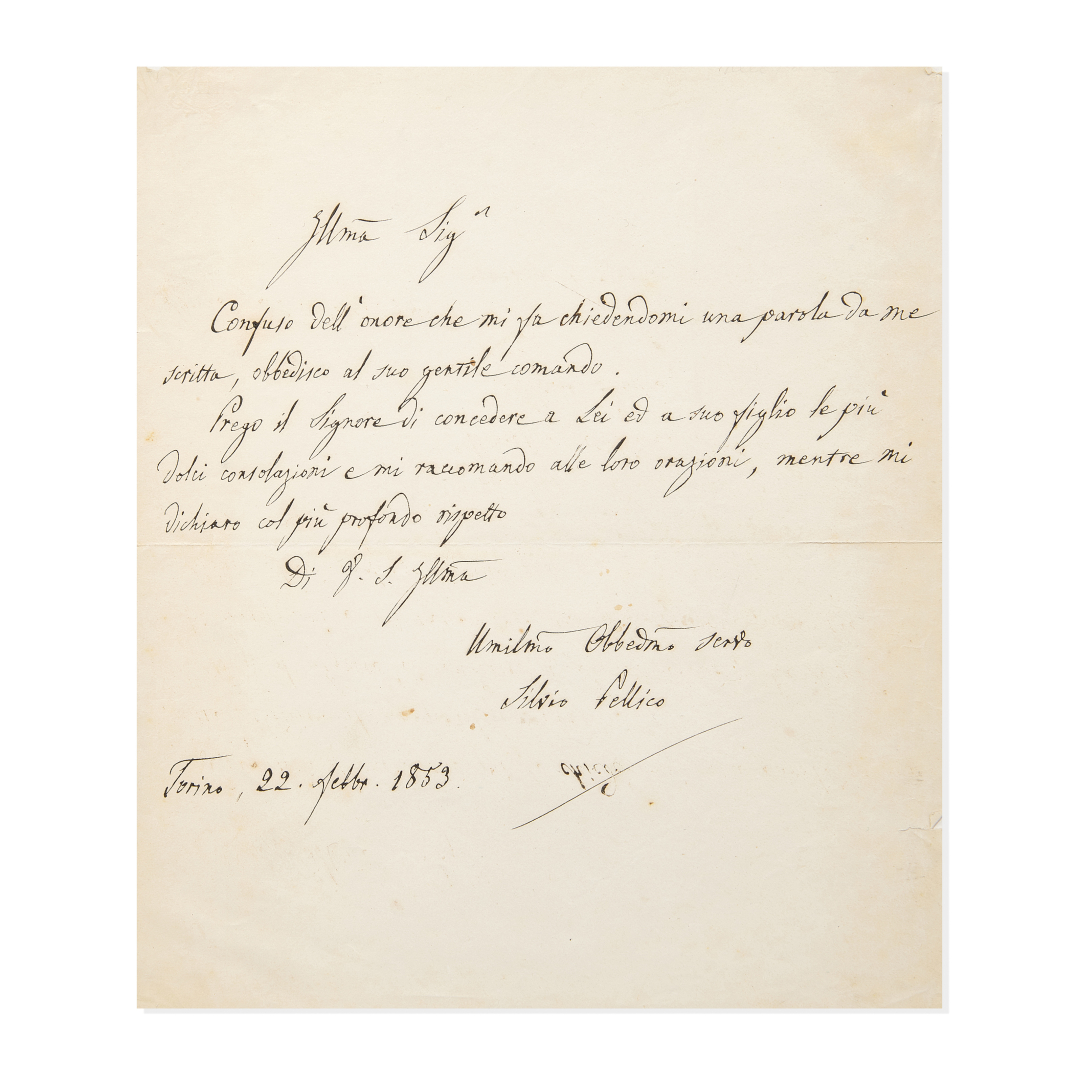 Illm̄a Sigra
Confuso dell'onore che mi fa chiedendomi una parola da me
scritta, obbedisco al suo gentile comando.
Prego il Signore di concedere a Lei ed a suo figlio le più
dolci consolazioni e mi raccomando alle loro orazioni, mentre mi
dichiaro col più profondo rispetto
Di V. S. Illm̄a
Umilm̄o Obbedm̄o servo
Silvio Pellico
Torino, 22. febbr. 1853.